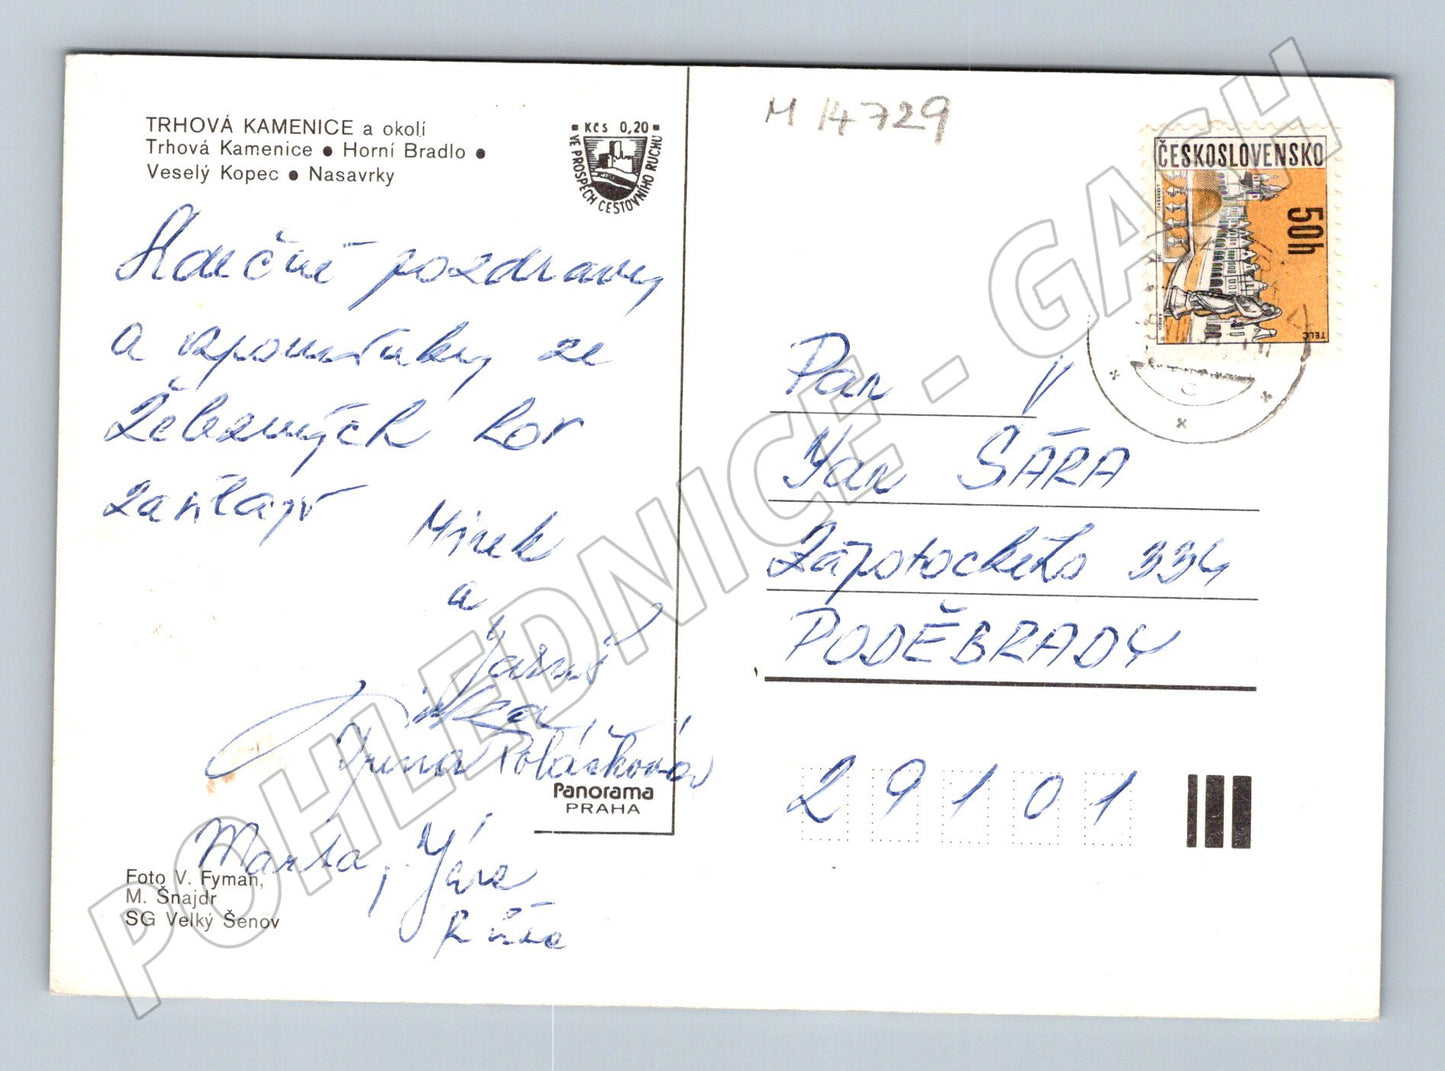 TRHOVÁ KAMENICE a okolí
Trhová Kamenice ● Horní Bradlo ●
Veselý Kopec ● Nasavrky
Kčs 0,20
VE PROSPĚCH CESTOVNÍHO RUCHU
Srdečné pozdravy
a vzpomínky ze
Železných hor
zasílají
Mirek
a
Jaruš
ka
Irena Polášková
Marta, Jára
Růža
Panorama
PRAHA
Foto V. Fyman,
M. Šnajdr
SG Velký Šenov
M 14729
ČESKOSLOVENSKO
50h
TELČ
Pan
Jan SÁRA
Zápotockého 334
PODĚBRADY
29101
POHLEDNICE - GASH